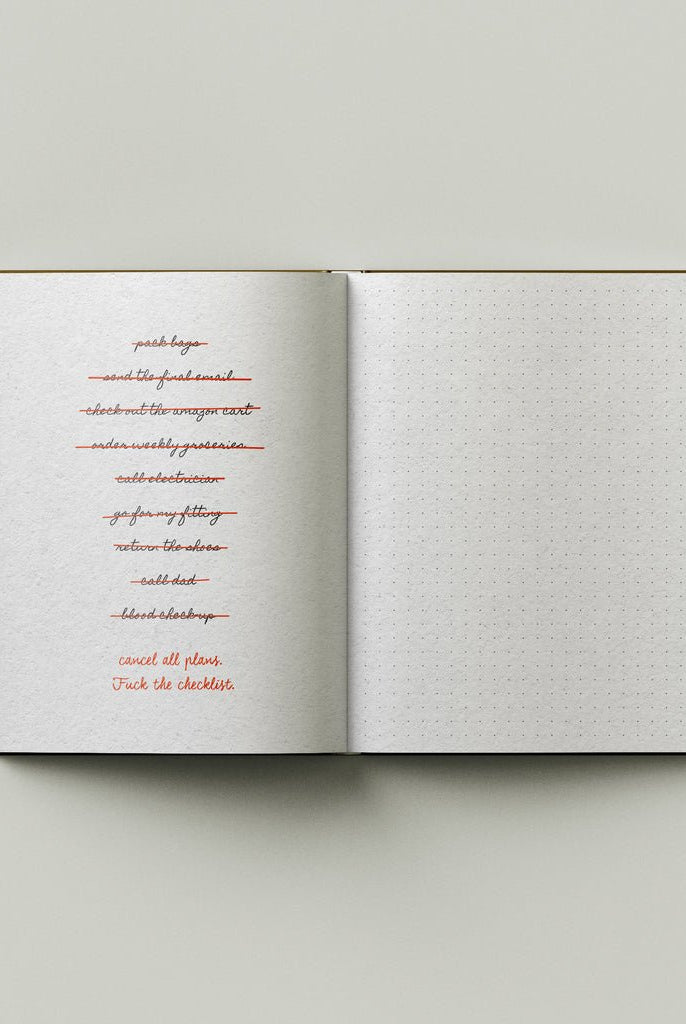 pack bags
send the final email.
check out the amazon cart
order weekly groceries
call electrician
go for my fitting
return the shoes
call dad
blood check-up
cancel all plans.
Fuck the checklist.